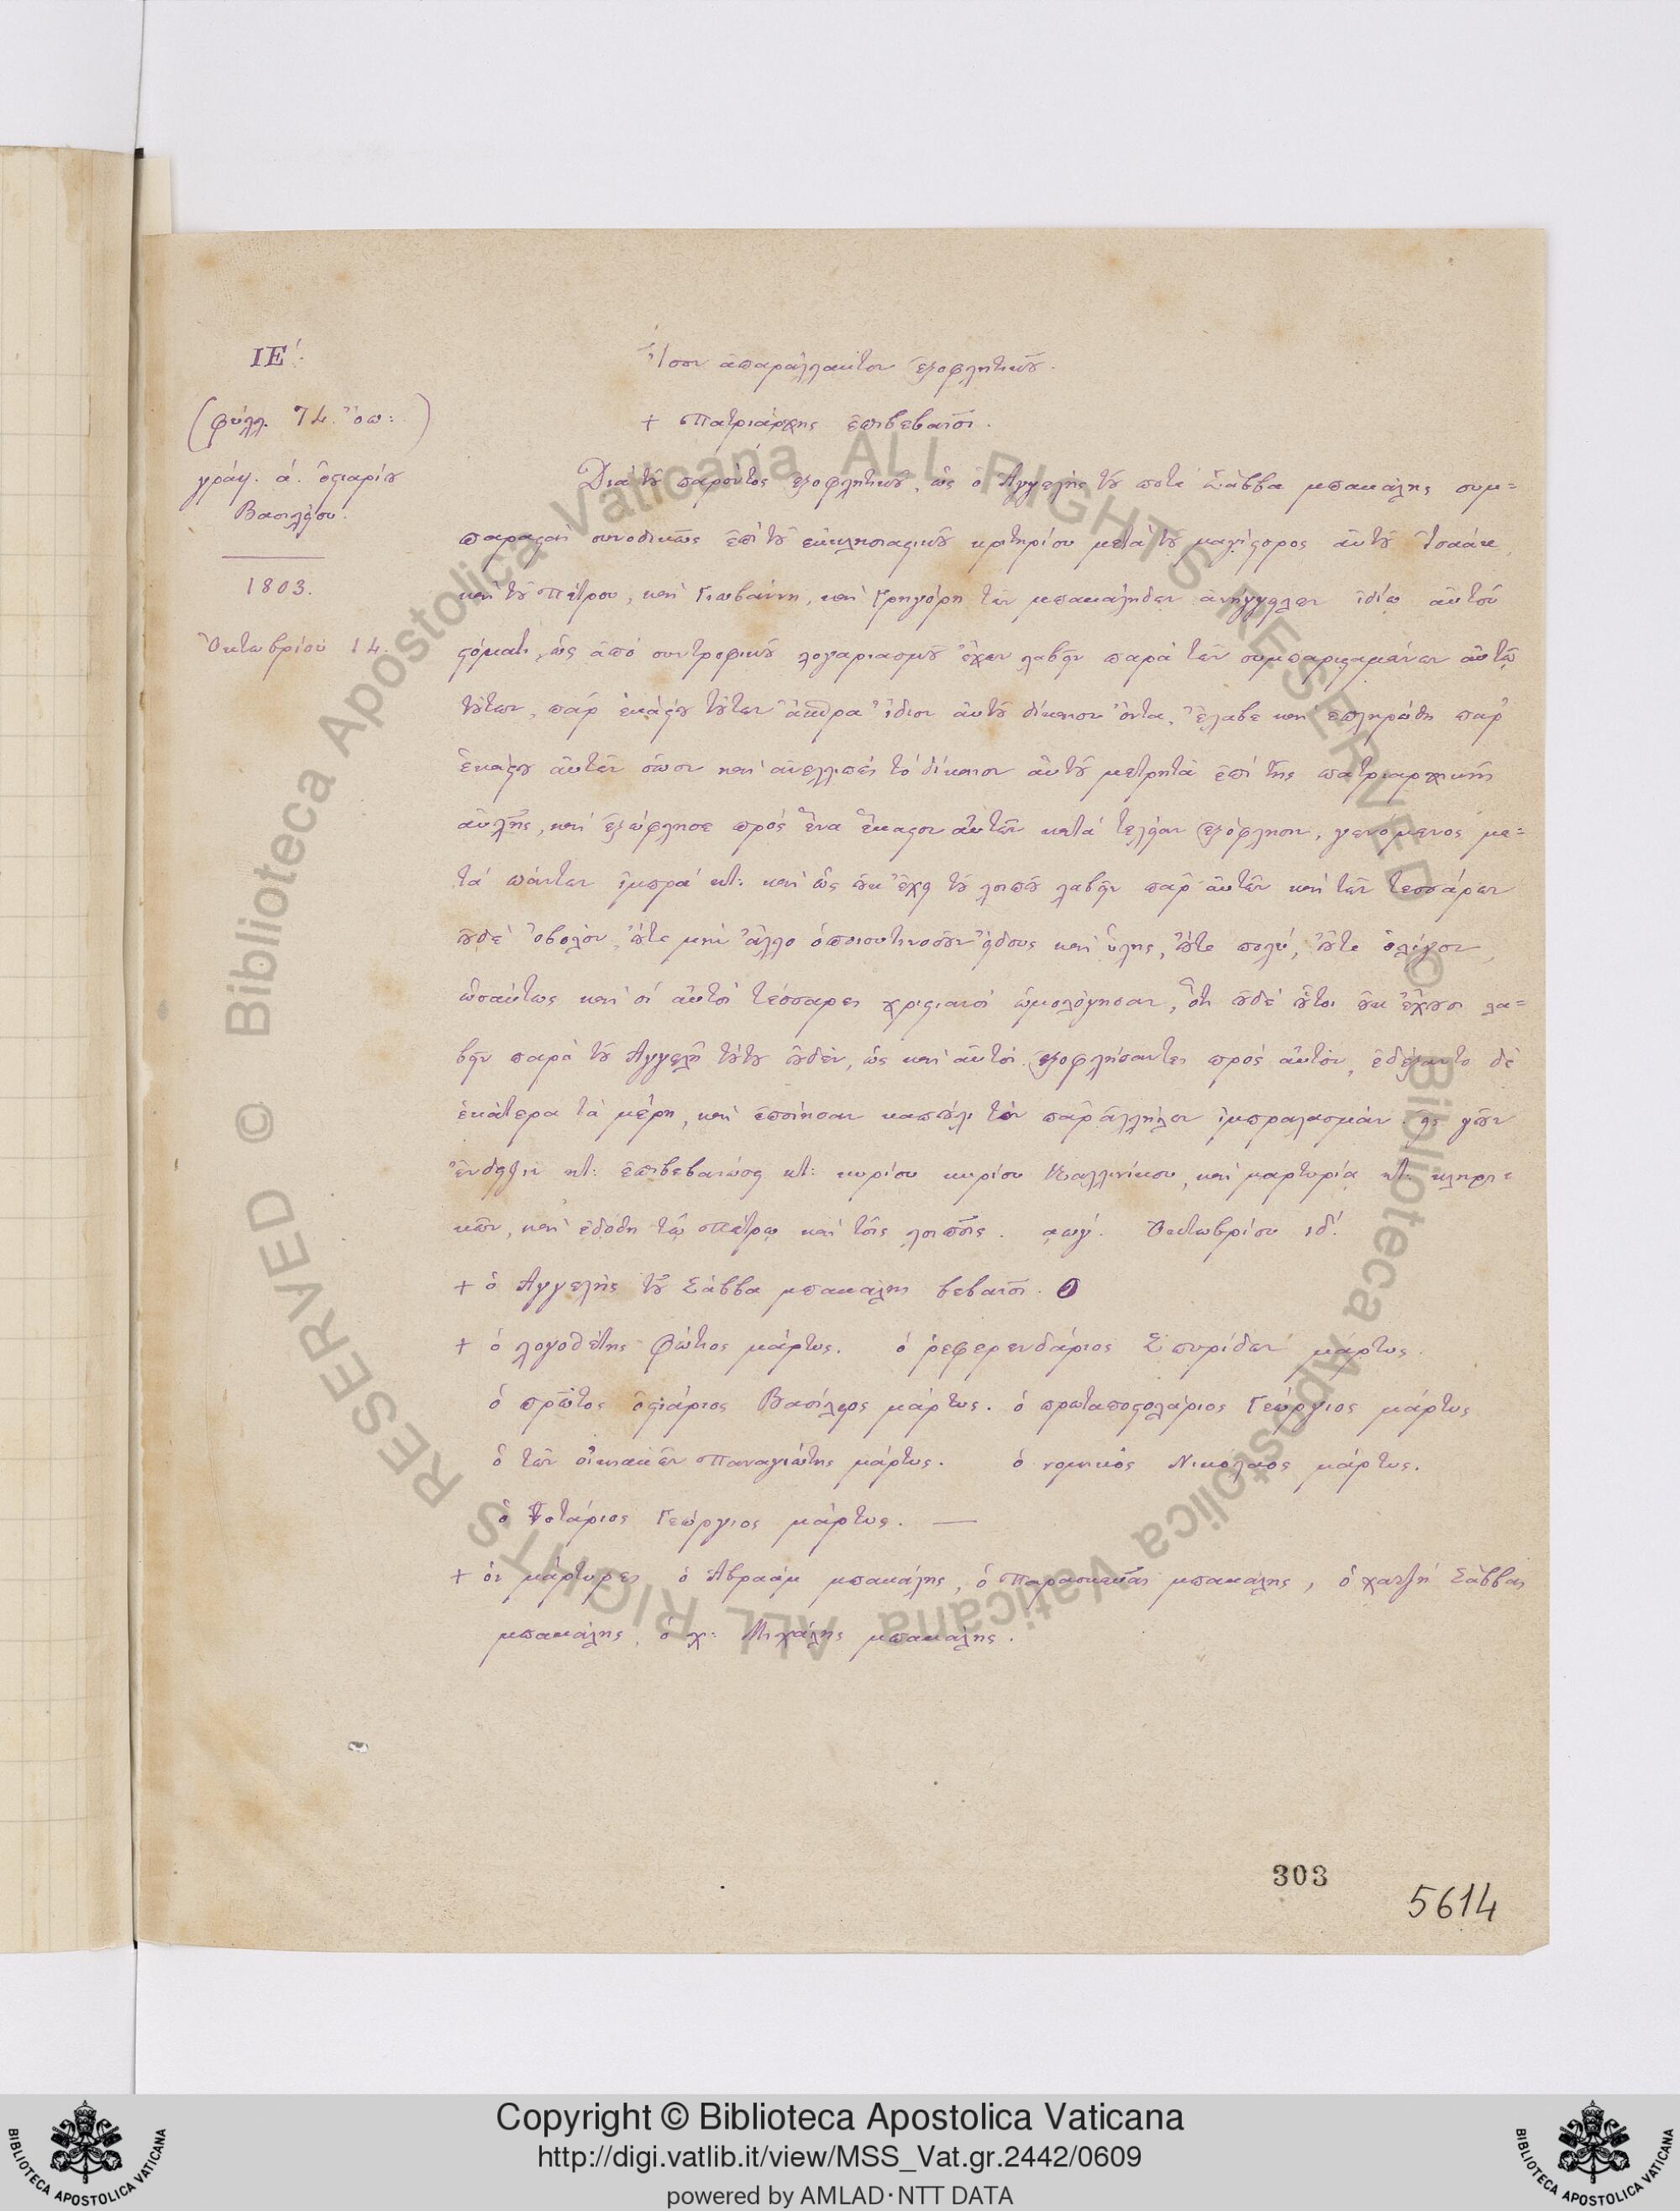 ΙΕ΄.
(φύλλ. 74. ὄπ:)
γράψ. ά. ὀστιαρίου
Βασιλείου.
1803.
Ὀκτωβρίου 14.
Ἴσον ἀπαράλλακτον ἐξοφλητικοῦ.
+ Πατριάρχης ἐπιβεβαιοῖ.
Διὰ τοῦ παρόντος ἐξοφλητικοῦ, ὡς ὁ Ἀγγελὴς τοῦ ποτὲ Σάββα μπακάλης συμ=
παραστὰς συνοδικῶς ἐπὶ τοῦ ἐκκλησιαστικοῦ κριτηρίου μετὰ τοῦ μαγίστορος αὐτοῦ Ἰσαάκ,
καὶ τοῦ Πέτρου, καὶ Γιωβάννη, καὶ Γρηγόρη τῶν μπακάλιδων ἀνήγγειλεν ἰδίῳ αὐτοῦ
στόματι, ὡς ἀπὸ συντροφικοῦ λογαριασμοῦ ἔχων λαβεῖν παρὰ τῶν συμπαρισταμένων αὐτῷ
τούτων, παρ' ἑκάστου τούτων ἴδιον αὐτοῦ δίκαιον ὄντα, ἔλαβε καὶ ἐπληρώθη παρ'
ἑκάστου αὐτῶν σῶον καὶ ἀνελλιπὲς τὸ δίκαιον αὐτοῦ μετρητὰ ἐπὶ τῆς πατριαρχικῆς
αὐλῆς, καὶ ἐξώφλησε πρὸς ἕνα ἕκαστον αὐτῶν κατὰ τελείαν ἐξόφλησιν, γενόμενος με=
τὰ πάντων ἰμπρά κτ: καὶ ὡς οὐκ ἔχει τοῦ λοιποῦ λαβεῖν παρ' αὐτῶν καὶ τῶν τεσσάρων
οὐδὲ ὀβολὸν, οὔτε μὴν ἄλλο ὁποιουτινοσοῦν εἴδους καὶ ὕλης, οὔτε πολύ, οὔτε ὀλίγον,
ὡσαύτως καὶ οἱ αὐτοὶ τέσσαρες χριστιανοὶ ὡμολόγησαν, ὅτι οὐδὲ οὗτοι οὐκ ἔχουσι λα=
βεῖν παρὰ τοῦ Ἀγγελῆ τούτου οὐδὲν, ὡς καὶ αὐτοὶ ἐξοφλήσαντες πρὸς αὐτὸν, ἐδέξαντο δὲ
ἑκάτερα τὰ μέρη, καὶ ἐποίησαν καπούλι τὸν παρ' ἀλλήλων ἰμπραλασμὸν. εἰς γοῦν
ἔνδειξιν κτ: ἐπιβεβαιώσει κτ: κυρίου κυρίου Καλλινίκου, καὶ μαρτυρίᾳ κτ: κληρι=
κῶν, καὶ ἐδόθη τῷ Πέτρῳ καὶ τοῖς λοιποῖς. αωγ΄. Ὀκτωβρίου ιδ΄.
+ ὁ Ἀγγελὴς τοῦ Σάββα μπακάλης βεβαιοῖ.
+ ὁ λογοθέτης Φώτιος μάρτυς. ὁ ῥεφερενδάριος Σπυρίδων μάρτυς.
ὁ πρῶτος ὀστιάριος Βασίλειος μάρτυς. ὁ πρωταποστολάριος Γεώργιος μάρτυς
ὁ τῶν οἰκιακῶν Παναγιώτης μάρτυς. ὁ νομικὸς Νικόλαος μάρτυς.
ὁ Νοτάριος Γεώργιος μάρτυς. —
+ οἱ μάρτυρες ὁ Ἀβραὰμ μπακάλης, ὁ Παρασκευᾶς μπακάλης, ὁ χατζῆ Σάββας
μπακάλης, ὁ χ: Μιχάλης μπακάλης.
303
5614
© Biblioteca Apostolica Vaticana ALL RIGHTS RESERVED
© Biblioteca Apostolica Vaticana ALL RIGHTS RESERVED
Copyright © Biblioteca Apostolica Vaticana
http://digi.vatlib.it/view/MSS_Vat.gr.2442/0609
powered by AMLAD·NTT DATA
BIBLIOTECA APOSTOLICA VATICANA
BIBLIOTECA APOSTOLICA VATICANA